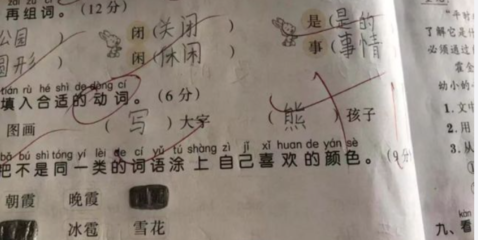 再组词。(12分)
公园 ) 闭(关闭) 是(是的)
圆形) 闲(休闲) 事(事情)
tián rù hé shì de dòng cí
填入合适的动词。(6分)
图画 (写)大字 (熊)孩子
bǎ bú shì tóng yí lèi de cí yǔ tú shàng zì jǐ xǐ huan de yán sè
把不是同一类的词语涂上自己喜欢的颜色。(9分
朝霞 晚霞
冰雹 雪花
"平时
了解它是
必须通过
霍金
幼小的
1.文
2.用
3.从
kàn
九、看